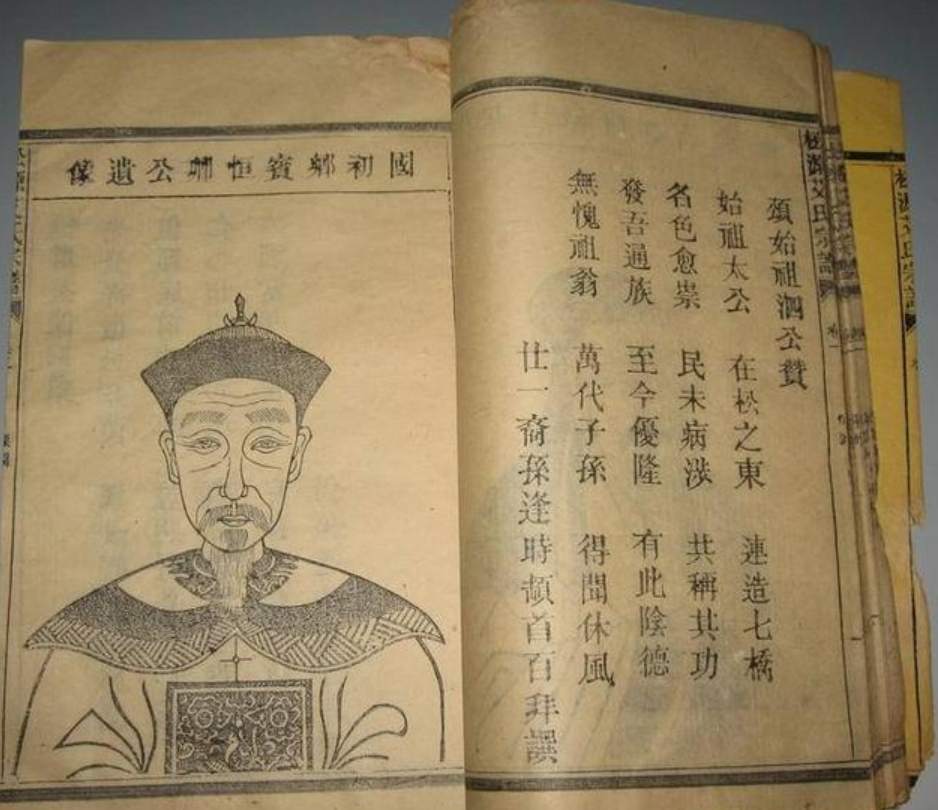 頌始祖泗公贊
始祖太公 在松之東 連造七橋
名色愈崇 民未病涉 共稱其功
發吾通族 至今優隆 有此陰德
無愧祖翁 萬代子孫 得聞休風
仕一裔孫逢時頓首百拜譔
國初鄉賓恒卿公遺像
松源艾氏宗譜
松源艾氏宗譜